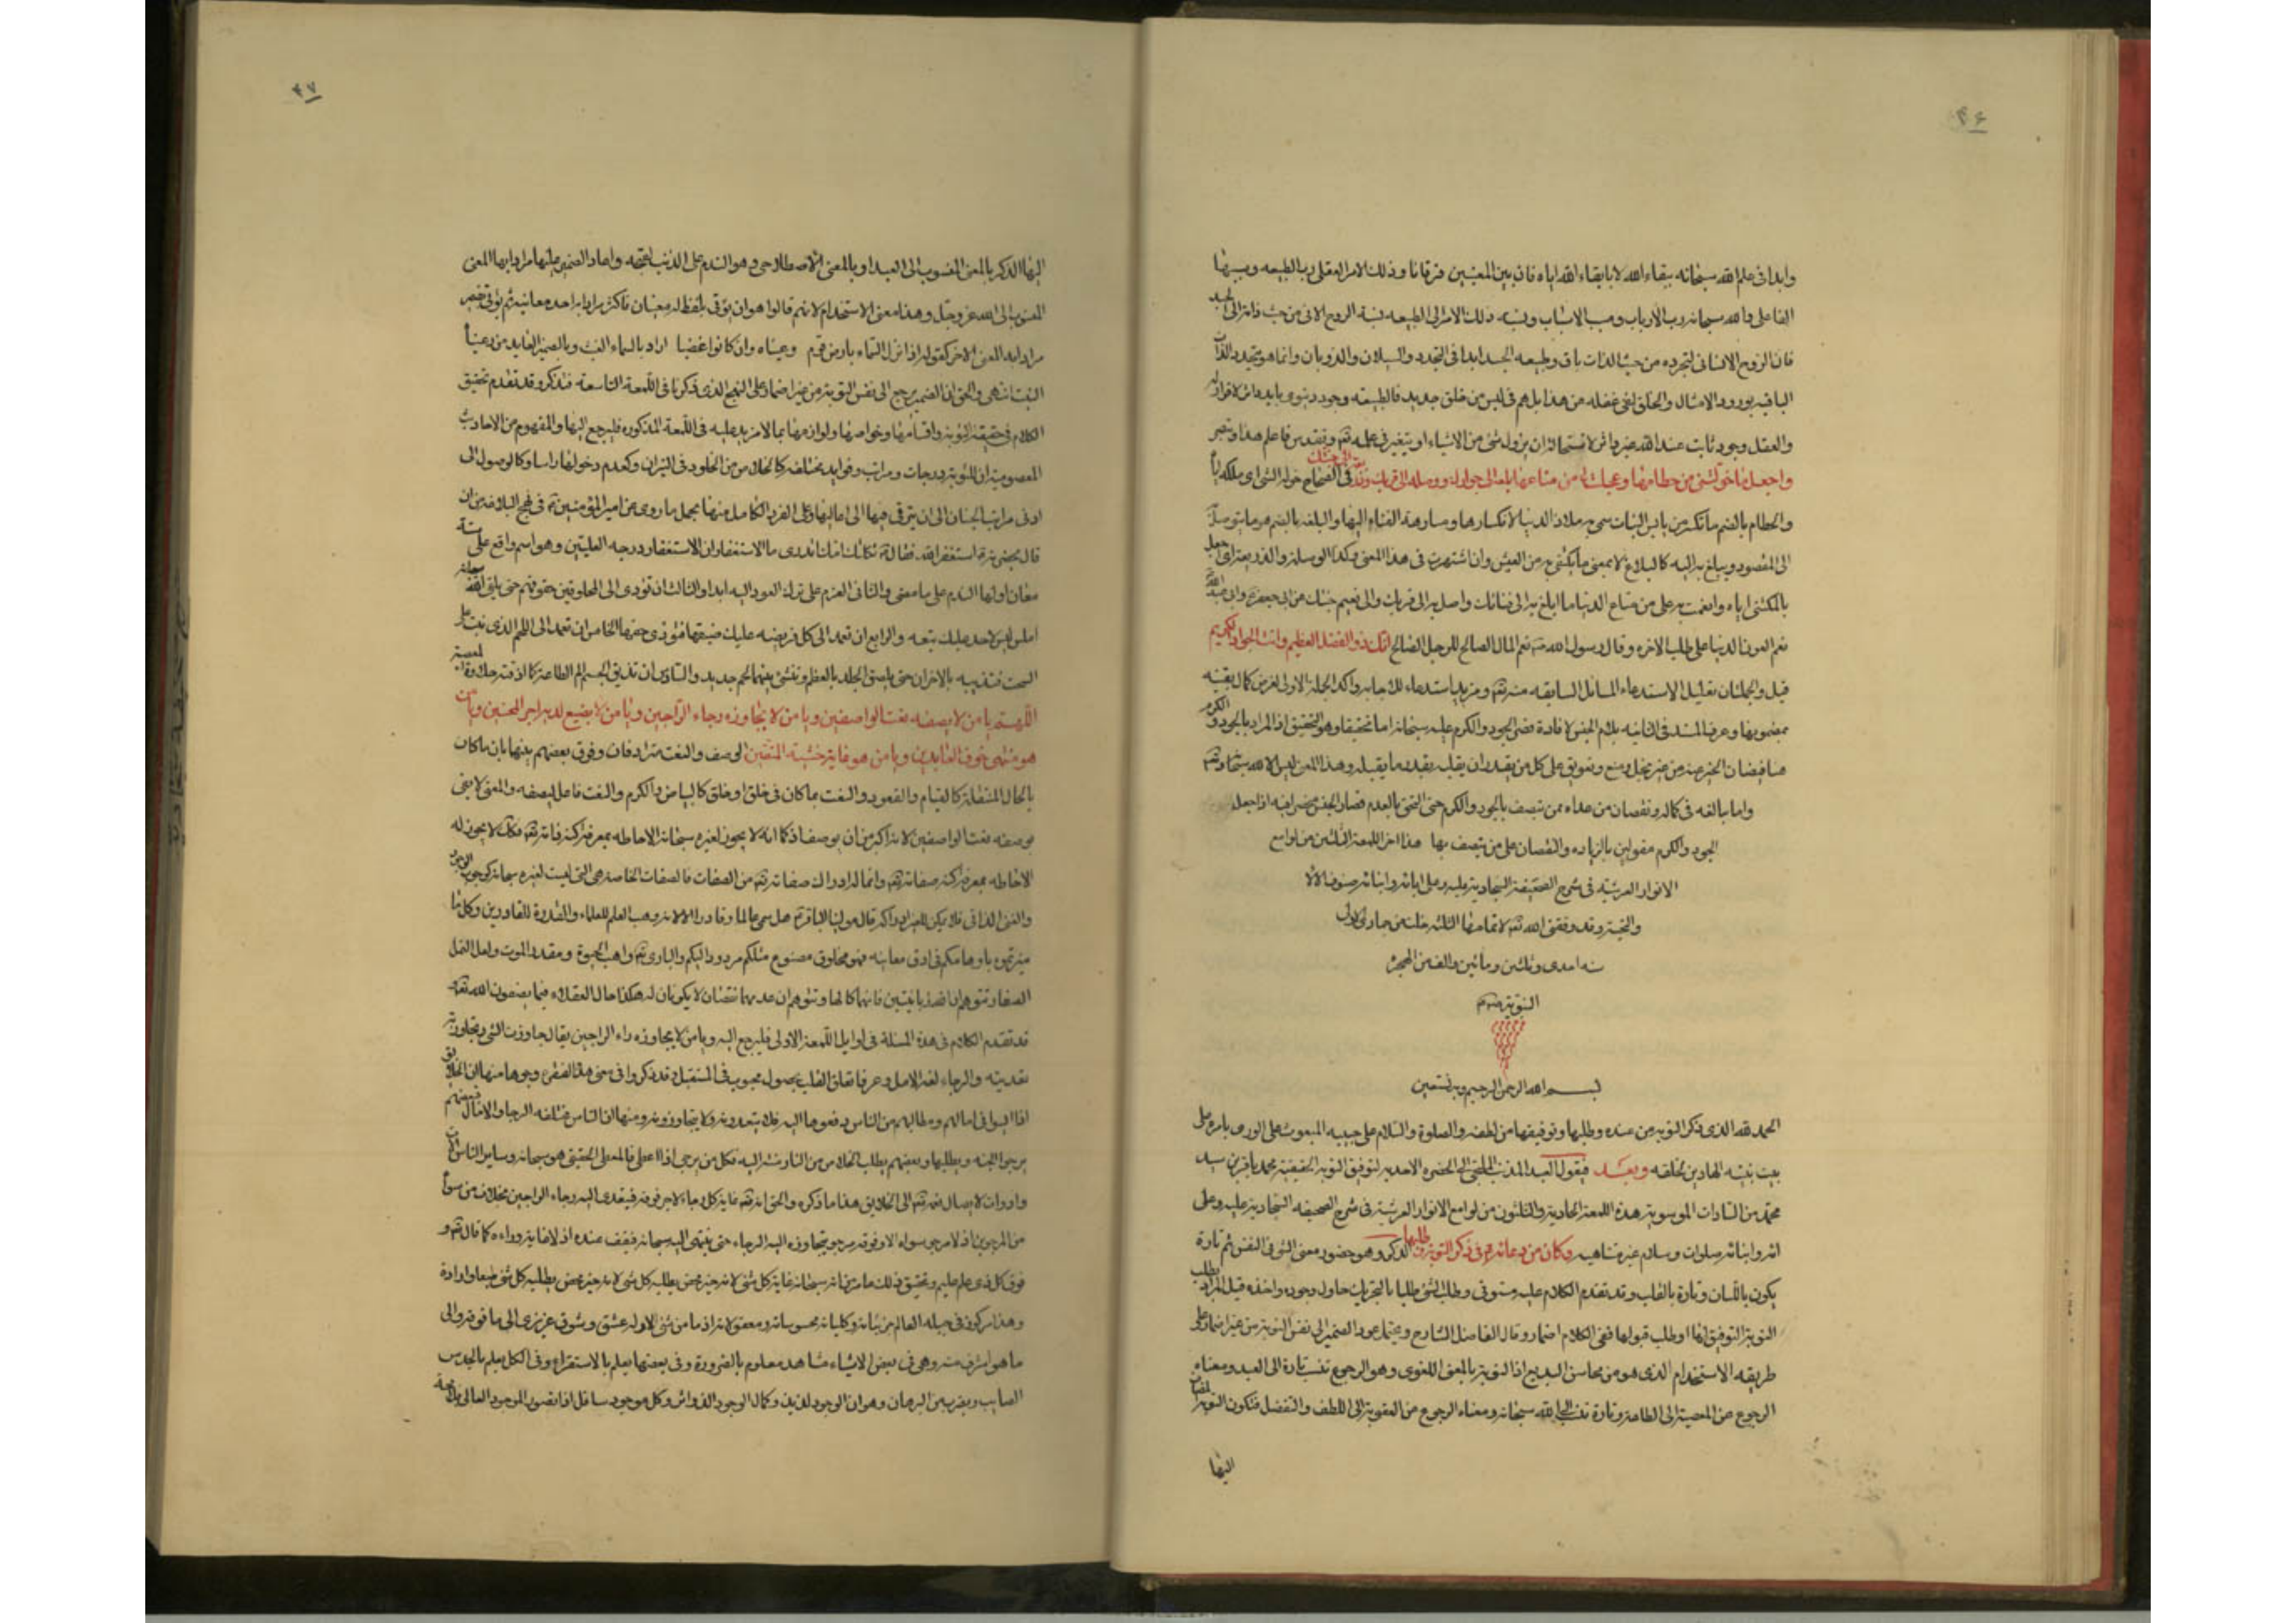 ۴۶
وابدا فی علم الله سبحانه ببقاء الله لا بابقاء الله ایاه فان بین المعنیین فرقانا وذلک الامر العقلی رب الطبیعه
الفاعلی والله سبحانه رب الارباب ومسبب الاسباب ونسبة ذلک الامر الی الطبیعه نسبة الروح الانسانی من حیث ذاته الی الجسد
فان الروح الانسانی لتجرده من حیث الذات باق وطبیعه الجسد ابدا فی التجدد والسیلان والذوبان وانما هو متجدد الذات
الباقیه بورود الامثال والخلق لفی غفله من هذا بل هم فی لبس من خلق جدید فالطبیعه وجود دنیوی
والعقل وجود ثابت عند الله غیر داثر لاستحالة ان یزول شئ من الاشیاء او یتغیر فی علمه تعالی وتقدس فاعلم هذا
واجعل ما خولتنی من حطامها وعجلت لی من متاعها بلغة الی جوارک ووصلة الی قربک وذریعة الی جنتک فی الصحاح خوله الشئ ای ملکه ایاه
والحطام بالضم ما تکسر من یابس النبات سمی به ملاذ الدنیا لانکسارها ومسارعة الفناء الیها والبلغه بالضم هو ما یتوصل به
الی المقصود ویبلغ به الیه کالبلاغ لا بمعنی ما یکتفی به من العیش وان اشتهرت فی هذا المعنی وکذا الوسیلة والذریعة ای اجعل
ما ملکتنی ایاه وانعمت به علی من متاع الدنیا ما ابلغ به الی واصل به الی قربک والی نعیم جنتک عن ابی جعفر وابی عبد الله
نعم العون الدنیا علی طلب الاخره وقال رسول الله نعم المال الصالح للرجل الصالح انک ذو الفضل العظیم وانت الجواد الکریم
قیل والجملتان تعلیل الاستدعاء المسائل السابقه منه تعالی ومزید استدعاء للاجابه واکد الجملة الاولی لغرض کمال یقینه
بمضمونها وعرف المسند فی الثانیه بلام الجنس لافادة قصر الجود والکرم علیه سبحانه اما تحقیقا وهو التحقیق اذ المراد بالجود والکرم
هنا فیضان الخیر عنه من غیر بخل ومنع وتعویق علی کل من یقدر ان یقبله بقدر ما یقبله وهذا المعنی لیس الا لله سبحانه
واما مبالغه فی کماله ونقصان من عداه ممن یتصف بالجود والکرم حتی التحق بالعدم فصار الجنس منحصرا فیه اذا جعل
الجود والکرم مقولین بالزیاده والنقصان علی من یتصف بها هذا اخر اللمعة الثلثین من لوامع
الانوار العرشیة فی شرح الصحیفة السجادیة علیه وعلی ابائه وابنائه صنوف الآلاء
والتحیة وقد وفقنی الله تعالی لاتمامها الثلثة خلت من جمادی الاولی
سنه احدی وثلثین ومائتین والف من الهجرة
النبویة
بسم الله الرحمن الرحیم وبه نستعین
الحمد لله الذی ذکر التوبة من عنده وطلبها وتوفیقها من لطفه والصلوة والسلام علی حبیبه المبعوث علی الوری بامره وعلی
بیت نبیه الهادین لخلقه وبعد فیقول العبد المذنب الملتجی الی الحضرة الاحدیه لتوفیق التوبة الحقیقیة محمد باقر بن سید
محمد من السادات الموسویة هذه اللمعة الحادیة والثلثون من لوامع الانوار العرشیة فی شرح الصحیفه السجادیة علیه وعلی
ابائه وابنائه صلوات وسلام غیر متناهیه وکان من دعائه فی ذکر التوبة وطلبها الذکر وهو حضور معنی الشئ فی النفس ثم تارة
یکون باللسان وتارة بالقلب وقد تقدم الکلام علیه مستوفی وطلب الشئ طلبا بالتحریک حاول وجوده واخذه قیل المراد بطلب
التوبة التوفیق لها او طلب قبولها ففی الکلام اضمار وقال الفاضل الشارح ویحتمل عود الضمیر الی نفس التوبة من غیر اضمار علی
طریقه الاستخدام الذی هو من محاسن البدیع اذ التوبة بالمعنی اللغوی وهو الرجوع تنسب تارة الی العبد ومعناه
الرجوع عن المعصیة الی الطاعة وتارة تنسب الی الله سبحانه ومعناه الرجوع عن العقوبة الی اللطف والتفضل فتکون التوبة المضاف
الیها
۴۷
الیها الذکر بالمعنی المنسوب الی العبد او بالمعنی الاصطلاحی وهو الندم علی الذنب لقبحه واعاد الضمیر علیها مرادا بها المعنی
المنسوب الی الله عز وجل وهذا معنی الاستخدام لانهم قالوا هو ان یؤتی بلفظ له معنیان فاکثر مرادا به احد معانیه ثم یؤتی بضمیره
مرادا به المعنی الآخر کقوله اذا نزل السماء بارض قوم رعیناه وان کانوا غضبا اراد بالسماء الغیث وبالضمیر العاید من رعیناه
النبت انتهی والحق ان الضمیر یرجع الی نفس التوبة من غیر اضمار علی النهج الذی ذکرنا فی اللمعة التاسعة فتذکر وقد تقدم تحقیق
الکلام فی حقیقة التوبة واقسامها وخواصها ولوازمها بما لا مزید علیه فی اللمعة المذکوره فلیرجع الیها والمفهوم من الاحادیث
المعصومیة ان للتوبة درجات ومراتب وفواید مختلفه کالخلاص من الخلود فی النیران وکعدم دخولها راسا وکالوصول الی
ادنی مراتب الجنان الی ان یترقی فیها الی اعالیها وعلی الفرد الکامل منها یحمل ما روی عن امیر المؤمنین فی نهج البلاغه من ان
قال بحضرته استغفر الله فقال ثکلتک امک اتدری ما الاستغفار ان الاستغفار درجه العلیین وهو اسم واقع علی ستة
معان اولها الندم علی ما مضی والثانی العزم علی ترک العود الیه ابدا والثالث ان تؤدی الی المخلوقین حقوقهم حتی یلقی الله سبحانه
املس لیس لاحد علیک تبعه والرابع ان تعمد الی کل فریضه علیک ضیعتها فتؤدی حقها الخامس ان تعمد الی اللحم الذی نبت علی
السحت فتذیبه بالاحزان حتی یلصق الجلد بالعظم وتنشئ بینهما لحم جدید والسادس ان تذیق الجسم الم الطاعة کما اذقته حلاوة المعصیة
اللهم یا من لا یصفه نعت الواصفین ویا من لا یجاوزه رجاء الراجین ویا من لا یضیع لدیه اجر المحسنین ویا من
هو منتهی خوف العابدین ویا من هو غایة خشیة المتقین الوصف والنعت مترادفان وفرق بعضهم بینها بان ما کان
بالحال المنتقلة کالقیام والقعود والنعت بما کان فی خلق او خلق کالبیاض والکرم والنعت فاعل لیصفه والمعنی لا یفی
بوصفه نعت الواصفین لانه اکبر من ان یوصف اذ کما انه لا یجوز لغیره سبحانه الاحاطه بمعرفة کنه ذاته تعالی فکذلک لا یجوز له
الاحاطه بمعرفة کنه صفاته تعالی وانما له ادراک صفاته تعالی من الصفات فالصفات الخاصة هی التی لیست لغیره سبحانه کوجوب الوجود
والغنی الذاتی فلا یمکن للغیر ادراکه قال مولینا الباقر هل سمی عالما وقادرا الا لانه وهب العلم للعلماء والقدرة للقادرین وکل ما
میزتموه باوهامکم فی ادق معانیه فهو مخلوق مصنوع مثلکم مردود الیکم والباری تعالی واهب الحیوة ومقدر الموت ولعل النمل
الصغار تتوهم ان لله زبانیتین فانهما کمالها وتتوهم ان عدمهما نقصان لا یکونان له هکذا حال العقلاء فیما یصفون الله تعالی به
قد تقدم الکلام فی هذه المسئلة فی اوایل اللمعة الاولی فلیرجع الیه ویا من لا یجاوزه رجاء الراجین یقال جاوزت الشئ وتجاوزته
تعدیته والرجاء لغة الامل وعرفا تعلق القلب بحصول محبوب فی المستقبل وقد ذکروا فی معنی هذا الفقرة وجوها منها ان الخلایق
اذا ایسوا فی امالهم ومطالبهم من الناس دفعوها الیه فلا یتعدونه ولا یتجاوزونه ومنها ان الناس مختلفه الرجاء والامال فبعضهم
یرجوا الجنه ویطلبها وبعضهم یطلب الخلاص من النار فکل من یرجی اذا اعطی فالمعطی الحقیقی هو سبحانه وسایر الناس الات
وادوات لایصال نعمه الی الخلایق هذا ما ذکره والحق انه تعالی غایة کل رجاء لا یرجی فوقه فیتعدی الیه رجاء الراجین بخلاف من سواه
من المرجوین اذ لا مرجو سواه الا وفوقه مرجو یتجاوزه الیه الرجاء حتی ینتهی الیه سبحانه فیقف عنده اذ لا غایة وراءه کما قال تعالی و
فوق کل ذی علم علیم وتحقیق ذلک ما مر انه سبحانه غایة کل شئ لانه خیر محض یطلبه کل شئ لانه خیر محض یطلبه کل شئ طبعا وارادة
وهذا مرکوز فی جبلة العالم جزئیاته وکلیاته محسوساته ومعقولاته اذ ما من شئ الا وله عشق وشوق غریزی الی ما فوقه والی
ما هو اشرف منه وهی فی بعض الاشیاء مشاهد معلوم بالضرورة وفی بعضها یعلم بالاستقراء وفی الکل یعلم بالحدس
الصایب وبضرب من البرهان وهو ان الوجود لذیذ وکمال الوجود الذ واثر وکل موجود سافل اذا تصور الموجود العالی